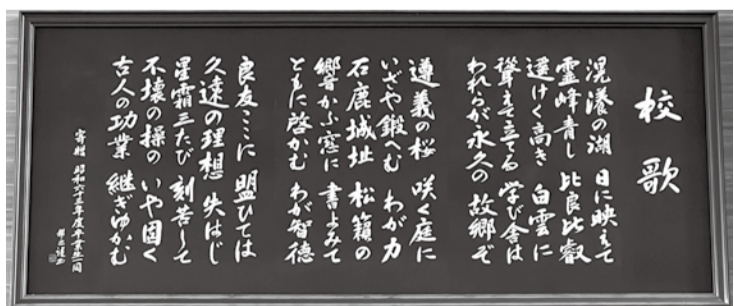 校歌
滉瀁の湖 日に映えて
霊峰青し 比良比叡
遥けく高き 白雲に
聳えて立てる 学び舎は
われらが永久の 故郷ぞ
遵義の桜 咲く庭に
いざや鍛へむ わが力
石鹿城址 松籟の
響かふ窓に 書よみて
ともに啓かむ わが智徳
良友ここに 盟ひては
久遠の理想 失はじ
星霜三たび 刻苦して
不壊の操の いや固く
古人の功業 継ぎゆかむ
寄贈 昭和六十三年度卒業生一同